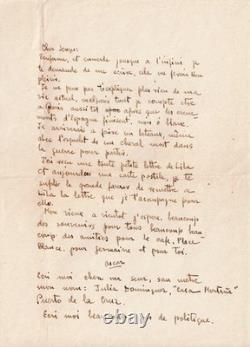 Cher Georges
Toujours, et camarde jusque a l'infini je
te demande de me ecrire, cela me ferais bien
plaisir.
Je ne peu pas t'expliquer plus rien de ma
vie actuel, malgres tout je compte etre
a Paris aussitot après que les
ments d'Espagne finissent, noir ó blanc.
Je arriverai a faire un bateau, même
chez l'orquel de un cheval mort dans
la guerre pour partir.
J'ai reçu une toute petite lettre de Lila
et aujourdui une carte postale, je te
suplie le grande faveur de remettre a
Lila la lettre que je t'acompagne pour
elle.
Mon vieux a vientot j'espere, beaucoup
des souvenirs pour tous beaucoup
des amities pour le cafe, Place
Blanche, pour Germaine et pour toi.
oscar
Ecri moi chez ma seur, san metre
mon nom: Julia Dominguez, "Casa
Puerto de la Cruz.
Ecri moi beaucoup de politique.
ebay